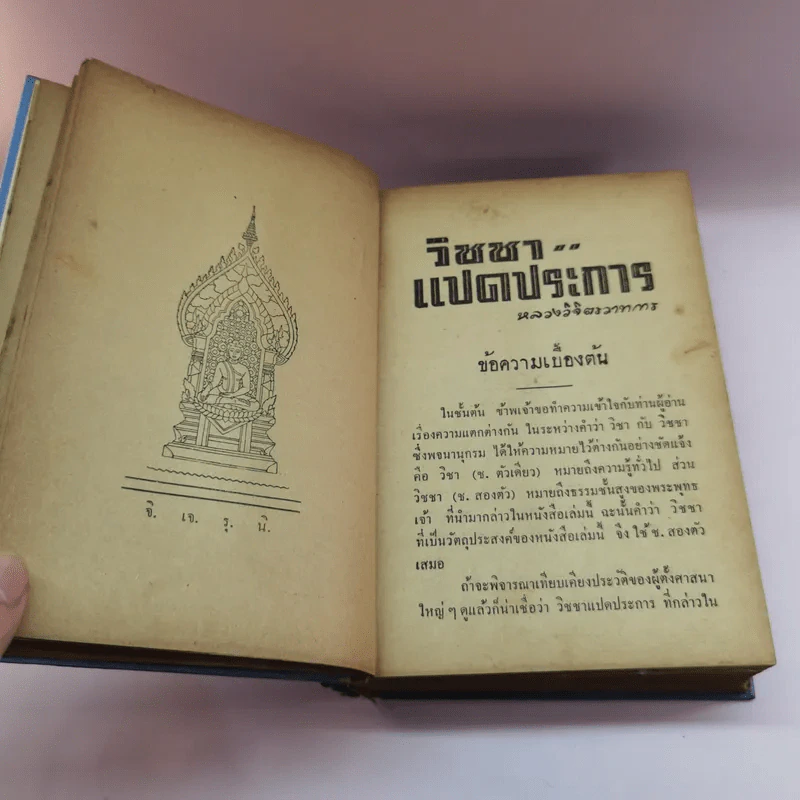 จิ. เจ. รุ. นิ.
วิชชา
แปดประการ
หลวงวิจิตรวาทการ
ข้อความเบื้องต้น
ในชั้นต้น ข้าพเจ้าขอทำความเข้าใจกับท่านผู้อ่าน
เรื่องความแตกต่างกัน ในระหว่างคำว่า วิชา กับ วิชชา
ซึ่งพจนานุกรม ได้ให้ความหมายไว้ต่างกันอย่างชัดแจ้ง
คือ วิชา (ช. ตัวเดียว) หมายถึงความรู้ทั่วไป ส่วน
วิชชา (ช. สองตัว) หมายถึงธรรมชั้นสูงของพระพุทธ
เจ้า ที่นำมากล่าวในหนังสือเล่มนี้ ฉะนั้นคำว่า วิชชา
ที่เป็นวัตถุประสงค์ของหนังสือเล่มนี้ จึง ใช้ ช. สองตัว
เสมอ
ถ้าจะพิจารณาเทียบเคียงประวัติของผู้ตั้งศาสนา
ใหญ่ ๆ ดูแล้วก็น่าเชื่อว่า วิชชาแปดประการ ที่กล่าวใน